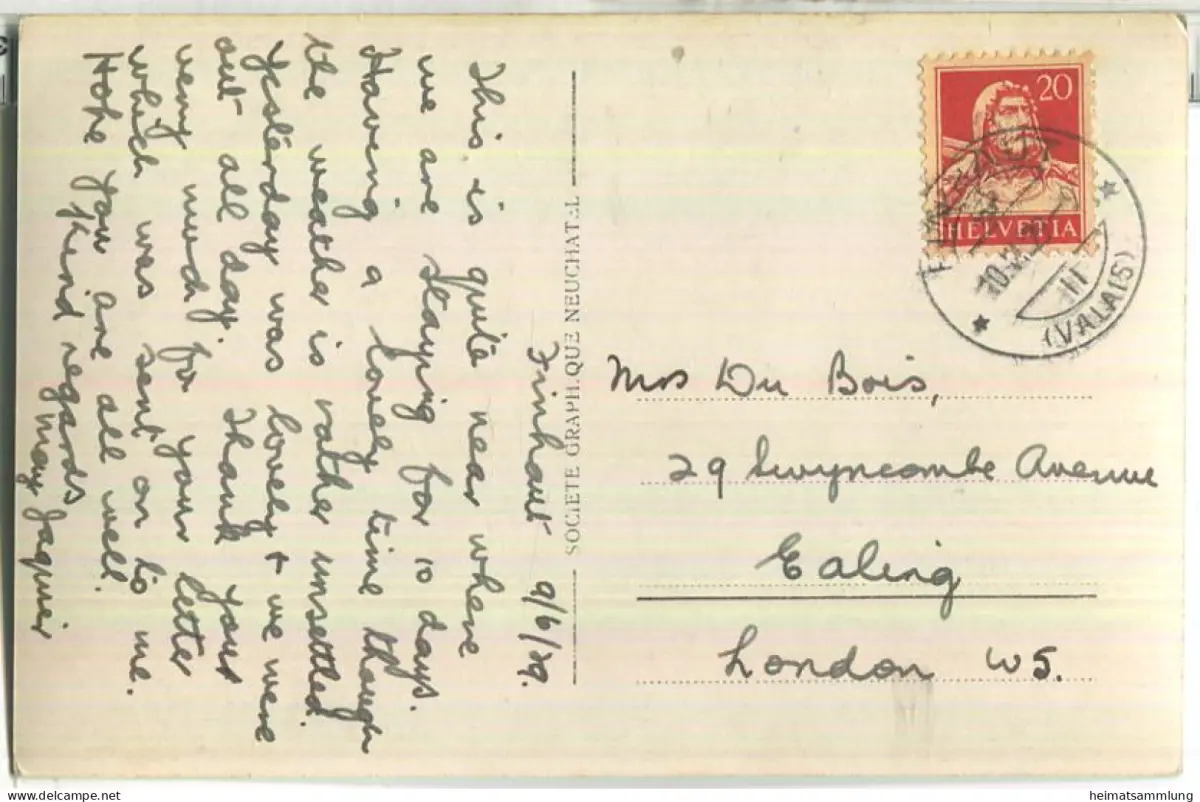 Finhaut 9/6/29.
This is quite near where
we are staying for 10 days.
Having a lovely time though
the weather is rather unsettled.
Yesterday was lovely & we were
out all day. Thank you
very much for your letter
which was sent on to me.
Hope you are all well.
Kind regards
May Jaquier
SOCIÉTÉ GRAPHIQUE NEUCHATEL
20
HELVETIA
10.
(VALAIS)
Mrs Du Bois,
29 Gwyncombe Avenue
Ealing
London W5.
www.delcampe.net
heimatsammlung